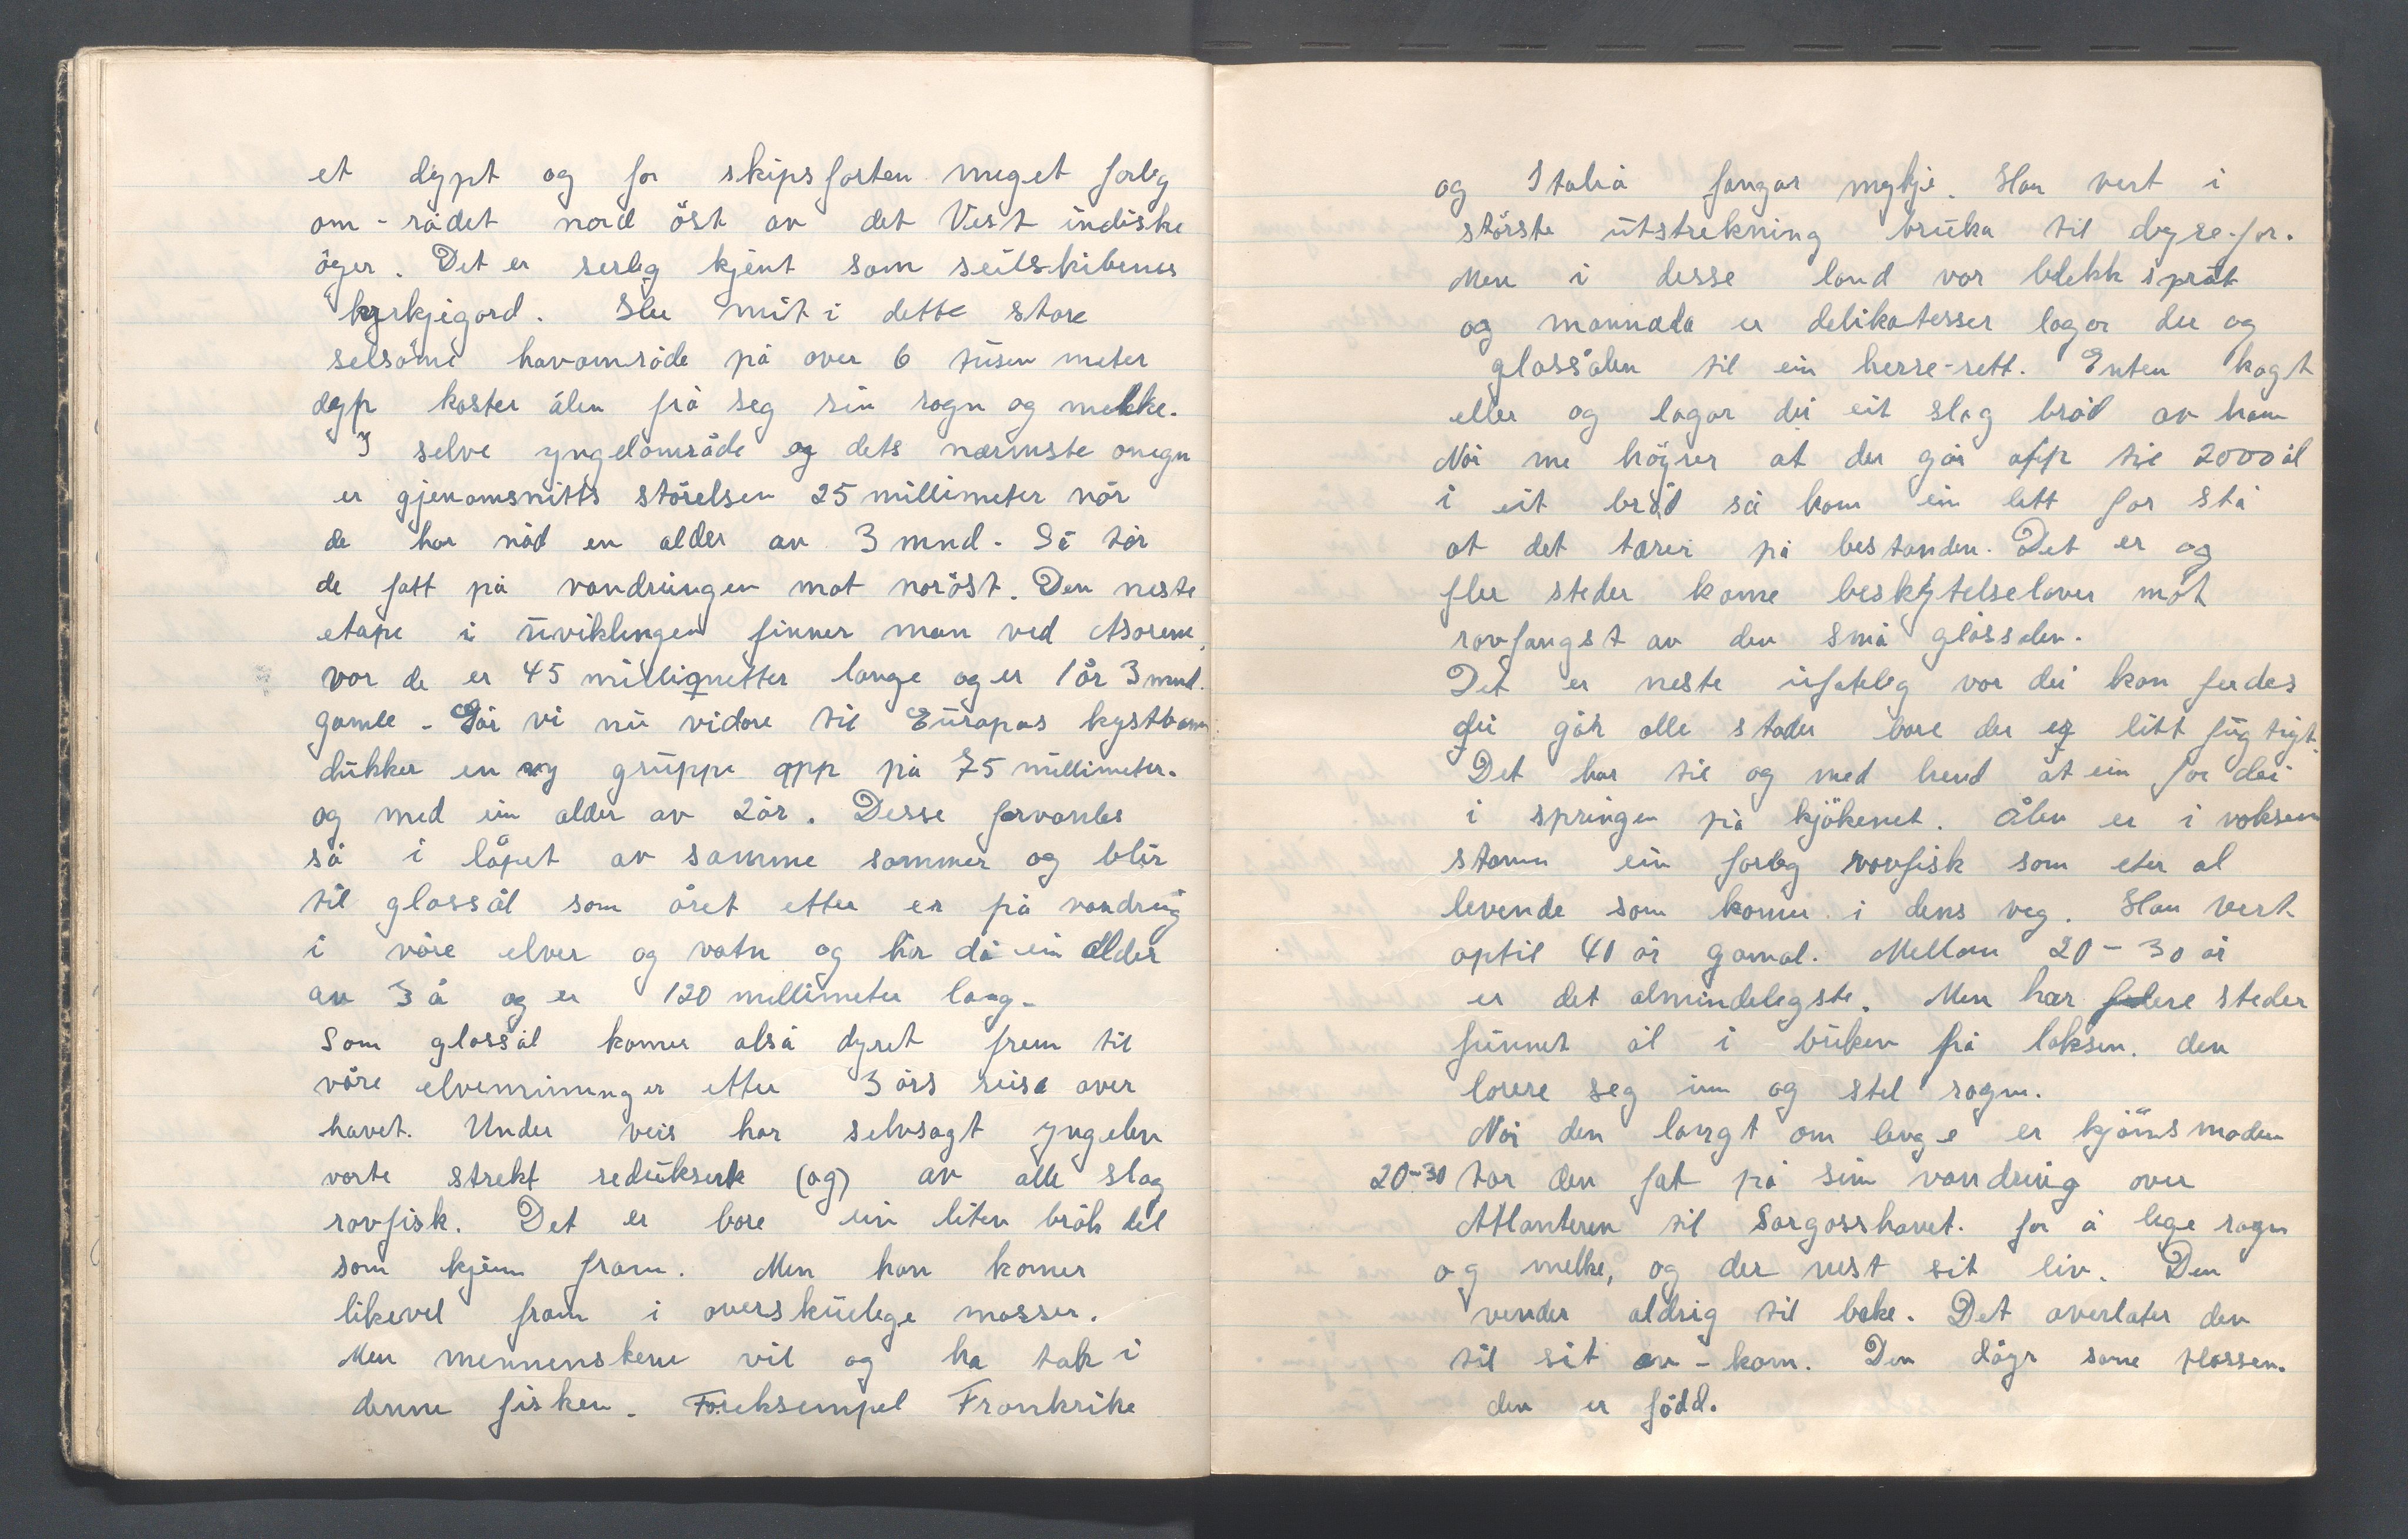 et dypt og for skipsfarten meget farlig
om-rådet nord öst av det Vest indiske
öyer. Det er serlig kjent som seilskibenes
kyrkjegard. Her mit i dette store
selsöme havområde på over 6 tusen meter
dyp kaster ålen frå seg sin rogn og melke.
I selve yngelområde og dets nærmste onegn
er gjenomsnitts störelsen 25 millimeter når
de har nåd en alder av 3 mnd. Så tar
de fatt på vandringen mot noröst. Den neste
etape i uviklingen finner man ved Asorene,
vor de er 45 millimetter lange og er 1 år 3 mnd.
gamle - Går vi nu vidare til Europas kystbann
dukker en ny gruppe opp på 75 millimeter.
og med ein alder av 2 år. Desse forvanles
så i löpet av samme sommer og blir
til glassål som året etter er på vandring
i våre elver og vatn og har då ein alder
av 3 å og er 120 millimeter lang.
Som glassål komer alså dyret frem til
våre elvemuninger etter 3 års reise over
havet. Under veis har selvsagt yngelen
vorte strekt reduksert (og) av alle slag
rovfisk. Det er bare ein liten brök del
som kjem fram. Men han komer
likevel fram i overskuelege masser.
Men mennenskene vil og ha tak i
denne fisken. Foreksempel Frankrike
og Italia fangar mykje. Han vert i
störste utstrekning bruka til dyre-for.
Men i desse land vor blekk sprut
og mannada er delikatesser lagar dei og
glassålen til ein herre-rett. Enten kogt
eller og lagar dei eit slag bröd av ham
Når me höyrer at der går opp til 2000 ål
i eit bröd så kan ein lett for stå
at det tærer på bestanden. Det er og
fler steder kome beskytelselover mot
rovfangst av den små glassålen.
Det er neste ufateleg vor dei kan ferdes
dei går alle stader bare der er litt fugtigt.
Det har til og med hend at ein for dei
i springen på kjökenet. Ålen er i voksen
stann ein farleg rovfisk som eter al
levende som komer i dens veg. Han vert
optil 40 år gamal. Mellom 20-30 år
er det almindelegste. Men har flere steder
funnet ål i buken på laksen. den
lorere seg inn og stel rogn.
Når den langt om lenge er kjönsmoden
20-30 tar den fat på sin vandring over
Atlanteren til Sargasshavet. for å lege rogn
og melke, og der mist sit liv. Den
vender aldrig til bake. Det overlater den
til sit av-kom. Den döyr same plassen.
den er född.